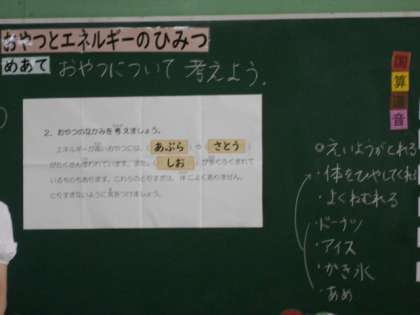 おやつとエネルギーのひみつ
めあて おやつについて 考えよう。
2. おやつのなかみを考えましょう。
エネルギーが高いおやつには、(あぶら)や(さとう)
がたくさん使われています。また、(しお)が多くふくまれて
いるものもあります。これらのとりすぎは、体によくありません。
とりすぎないように気をつけましょう。
国
算
道
音
えいようがとれる
・体をひやしてくれ
・よくねむれる
・ドーナツ
・アイス
・かき氷
・あめ